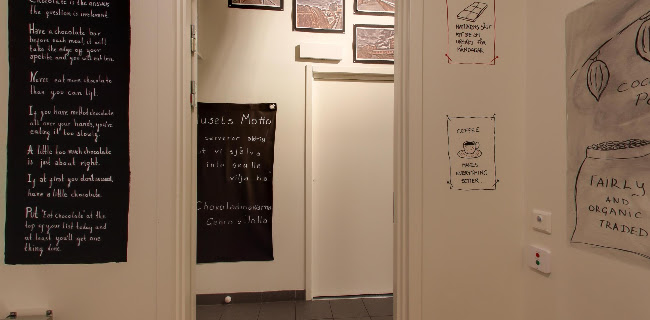 Chocolate is the answer
the question is irrelevant.
Have a chocolate bar
before each meal, it will
take the edge of your
appetite and you will eat less.
Never eat more chocolate
than you can lift.
If you have melted chocolate
all over your hands, you're
eating it too slowly.
A little too much chocolate
is just about right.
If at first you don't succeed,
have a little chocolate.
Put "Eat chocolate" at the
top of your list today and
at least you'll get one
thing done.
usets Motto
serverar aldrig
vi själva
inte skulle
vilja ha
Chokladmakarna
för
COFFEE
MAKES
EVERYTHING
BETTER
COC
FAIRLY
AND
ORGANIC
TRADED